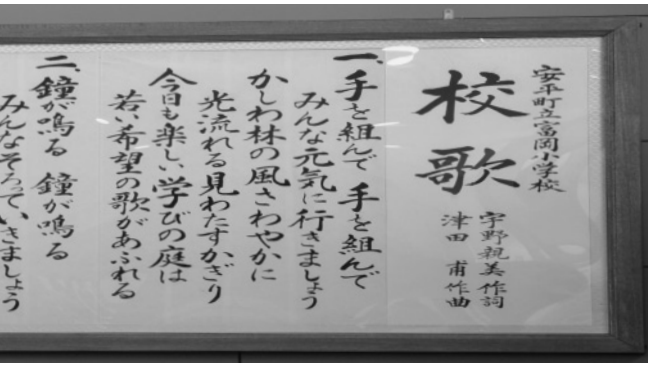 安平町立富岡小学校
校歌
宇野親美作詞
津田 甫作曲
一、手を組んで 手を組んで
みんな元気に行きましょう
かしわ林の風さわやかに
光流れる見わたすかぎり
今日も楽しい学びの庭は
若い希望の歌があふれる
二、鐘が鳴る 鐘が鳴る
みんなそろっていきましょう